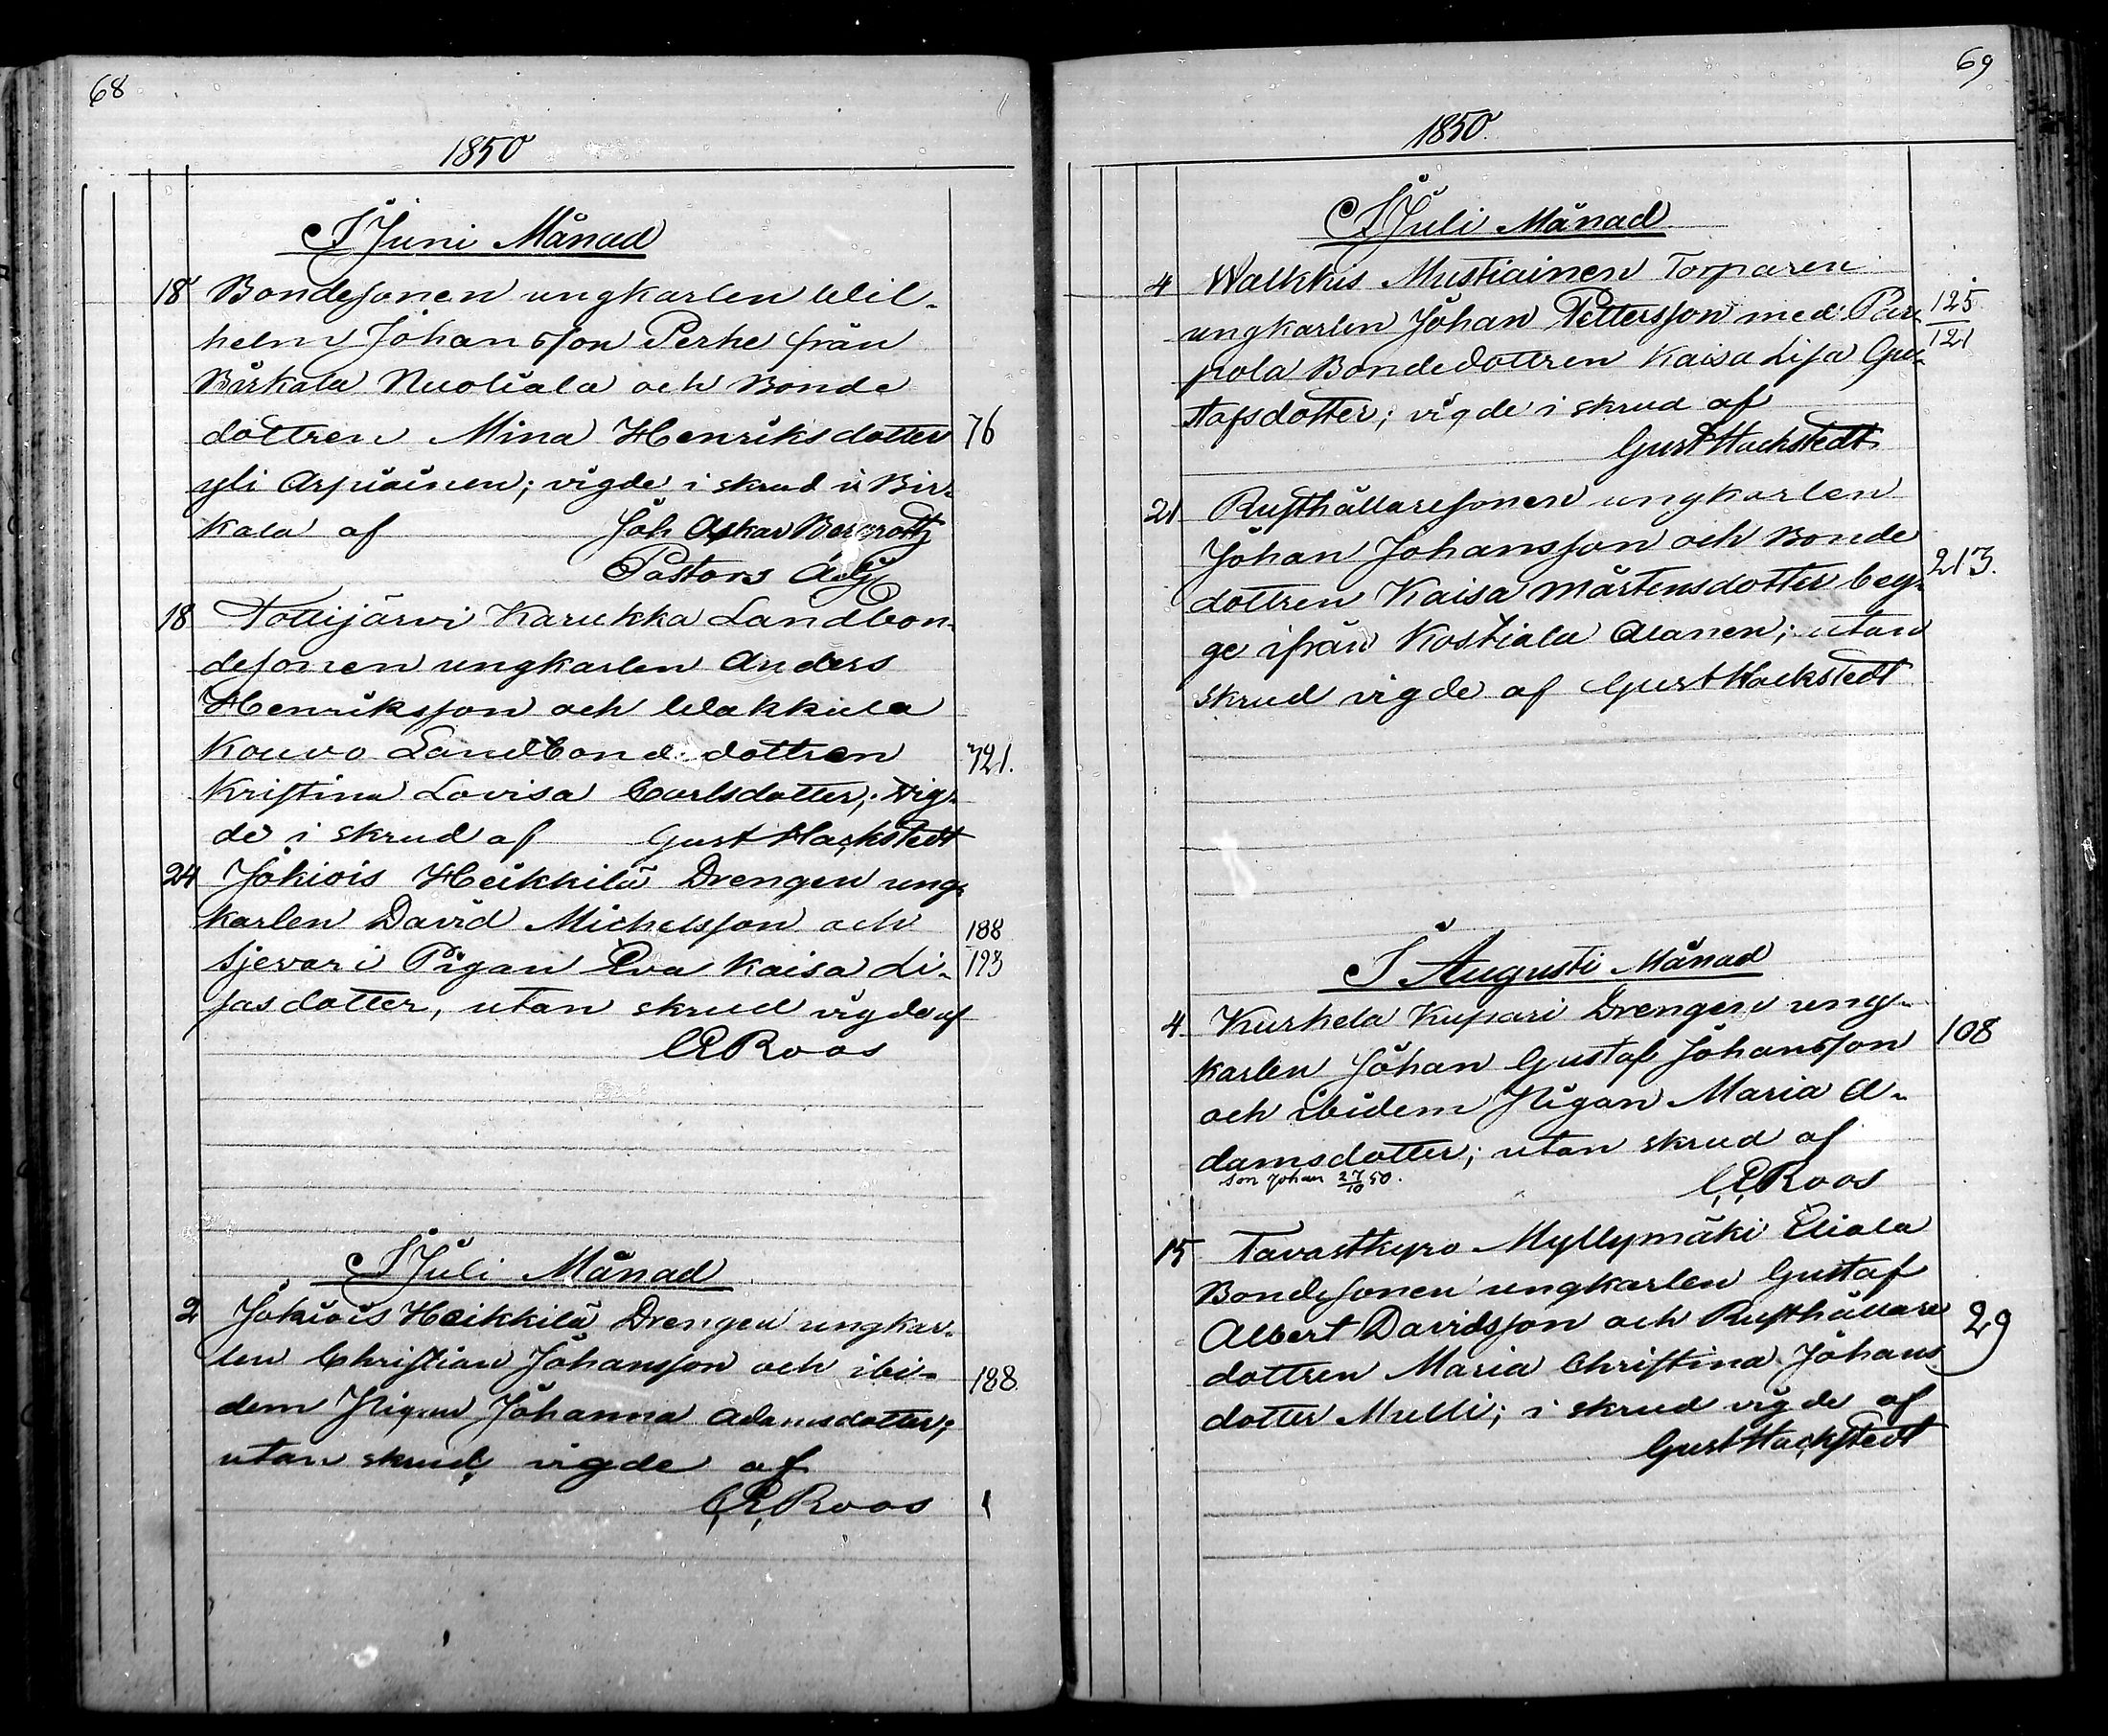 68
1850
I Juni Månad
18 Bondesonen ungkarlen Wil-
helm Johansson Perhe från
Birkala Nuoliala och Bonde
dottren Mina Henriksdotter 76
yli Arpiainen; vigde i skrud i Bir-
kala af Joh Oskar Bergroth
Pastors Adj
18 Tottijärvi Karukka Landbon-
desonen ungkarlen Anders
Henriksson och Wakkula
Kouvo Landbondedottren 321.
Kristina Lovisa Carlsdotter; vig-
de i skrud af Gust Hackstedt
24 Jokiois Heikkilä Drengen ung-
karlen David Michelsson och 188
Sjevari Pigan Eva Kaisa Li- 193
sasdotter, utan skrud vigde af
C E Roos
I Juli Månad
2 Jokiois Heikkilä Drengen ungkar-
len Christian Johansson och ibi- 188
dem Pigan Johanna Adamsdotter;
utan skrud vigde af
C E Roos
69
1850.
I Juli Månad
4 Walkkis Mustiainen Torparen
ungkarlen Johan Pettersson med Par- 125
pola Bondedottren Kaisa Lisa Gu- 121
stafsdotter; vigde i skrud af
Gust Hackstedt
21 Rusthållaresonen ungkarlen
Johan Johansson och Bonde
dottren Kaisa Mårtensdotter beg- 213.
ge ifrån Kostiala Alanen; utan
skrud vigde af Gust Hackstedt
I Augusti Månad
4 Kurkela Kupari Drengen ung-
karlen Johan Gustaf Johansson 108
och ibidem Pigan Maria A-
damsdotter; utan skrud af
son Johan 27/10 50.
C E Roos
15 Tavastkyro Myllymäki Eliala
Bondesonen ungkarlen Gustaf
Albert Davidsson och Rusthållare 29
dottren Maria Christina Johans
dotter Mulli; i skrud vigde af
Gust Hackstedt